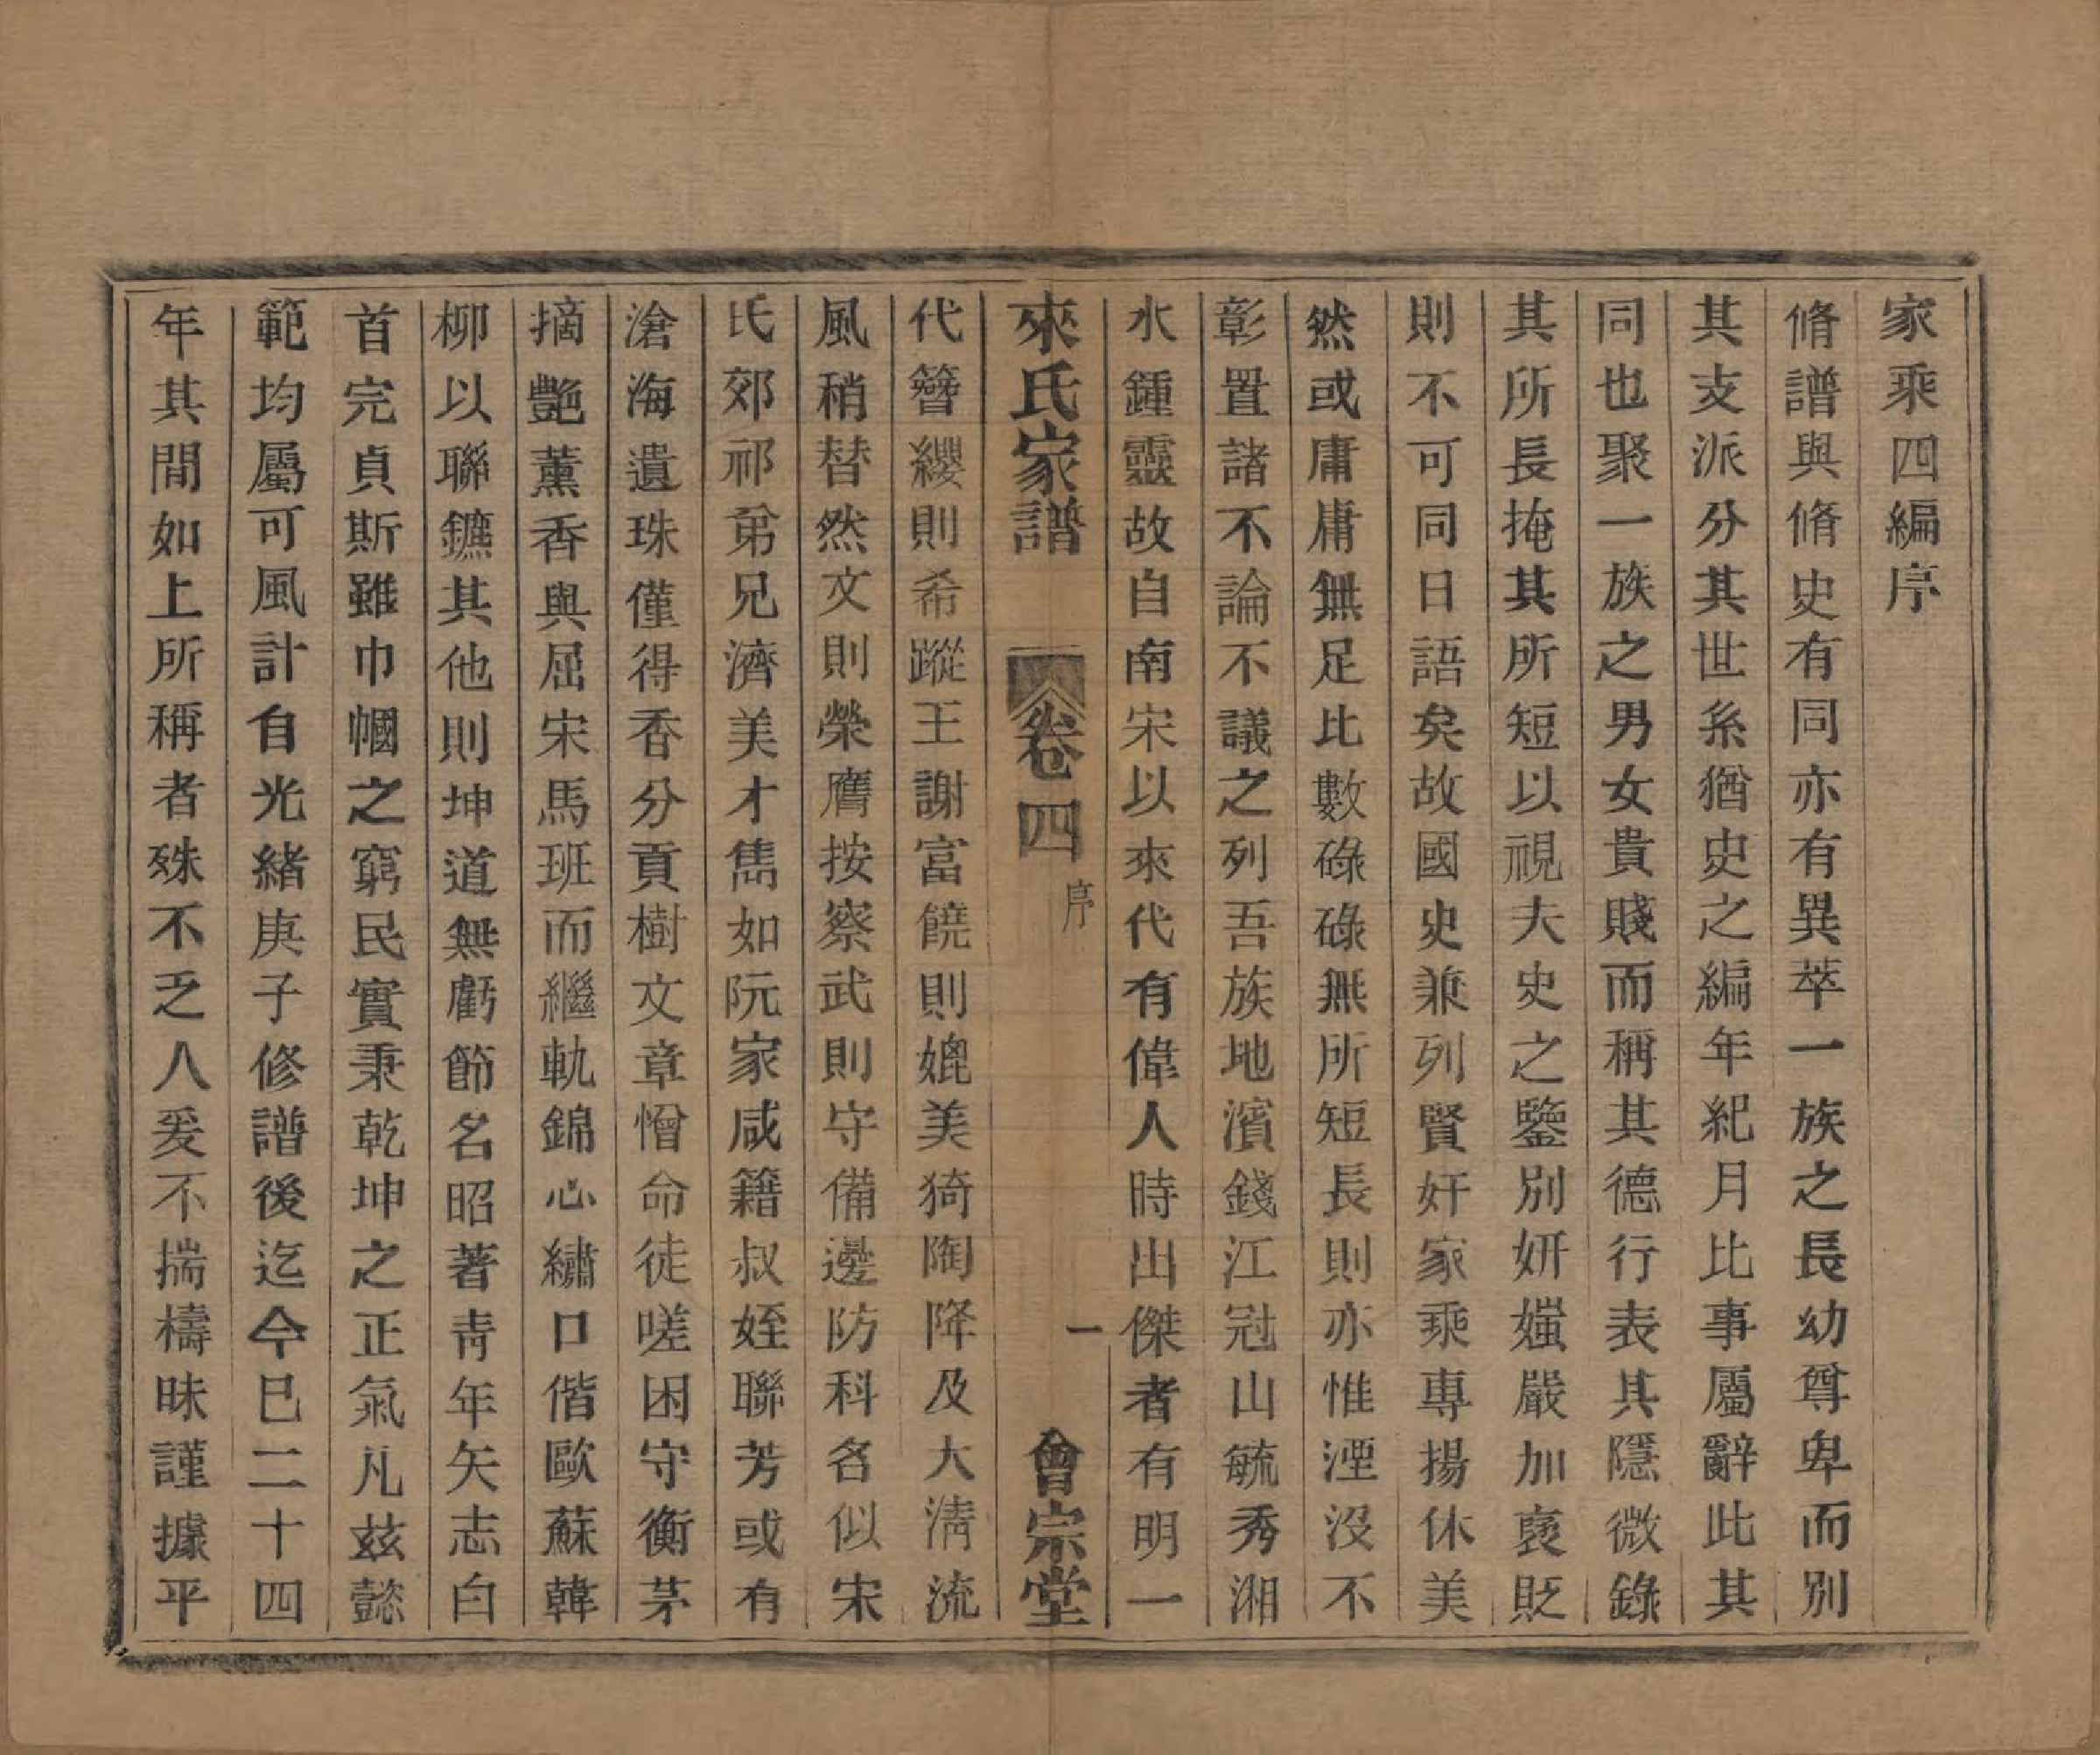 家乘四編序
脩譜與脩史有同亦有異萃一族之長幼尊卑而別
其支派分其世系猶史之編年紀月比事屬辭此其
同也聚一族之男女貴賤而稱其德行表其隱微錄
其所長掩其所短以視夫史之鑒別妍媸嚴加褒貶
則不可同日語矣故國史兼列賢奸家乘專揚休美
然或庸庸無足比數碌碌無所短長則亦惟湮沒不
彰置諸不論不議之列吾族地濱錢江冠山毓秀湘
水鍾靈故自南宋以來代有偉人時出傑者有明一
來氏家譜 卷四 序 一 會宗堂
代簪纓則希蹤王謝富饒則媲美猗陶降及大淸流
風稍替然文則榮膺按察武則守備邊防科名似宋
氏郊祁弟兄濟美才雋如阮家咸籍叔姪聯芳或有
滄海遺珠僅得香分貢樹文章憎命徒嗟困守衡茅
摘艷薰香與屈宋馬班而繼軌錦心繡口偕歐蘇韓
柳以聯鑣其他則坤道無虧節名昭著靑年矢志白
首完貞斯雖巾幗之窮民實秉乾坤之正氣凡玆懿
範均屬可風計自光緒庚子修譜後迄今已二十四
年其間如上所稱者殊不乏人爰不揣檮昧謹據平